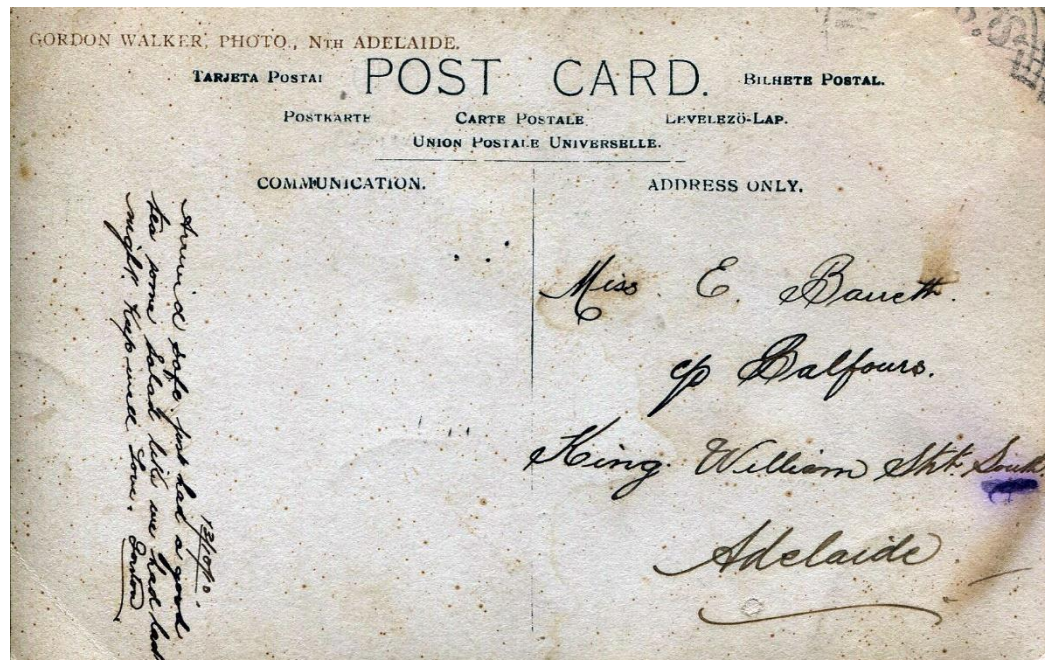 GORDON WALKER, PHOTO., NTH ADELAIDE.
TARJETA POSTAL POST CARD. BILHETE POSTAL.
POSTKARTE CARTE POSTALE. LEVELEZÖ-LAP.
UNION POSTALE UNIVERSELLE.
COMMUNICATION. ADDRESS ONLY.
13/10/10.
Arrived safe just had a good
tea some salad like we had last
night. Keep well Love. Gordon
Miss E. Barrett.
c/o Balfours.
King William Strt. South.
Adelaide